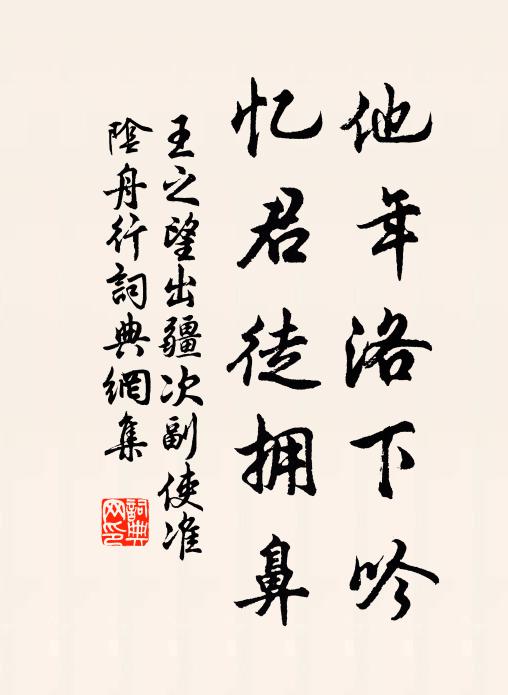 他年洛下吟
忆君徒拥鼻
王之望出疆次副使淮
陰舟行詞典網集
詞典網印